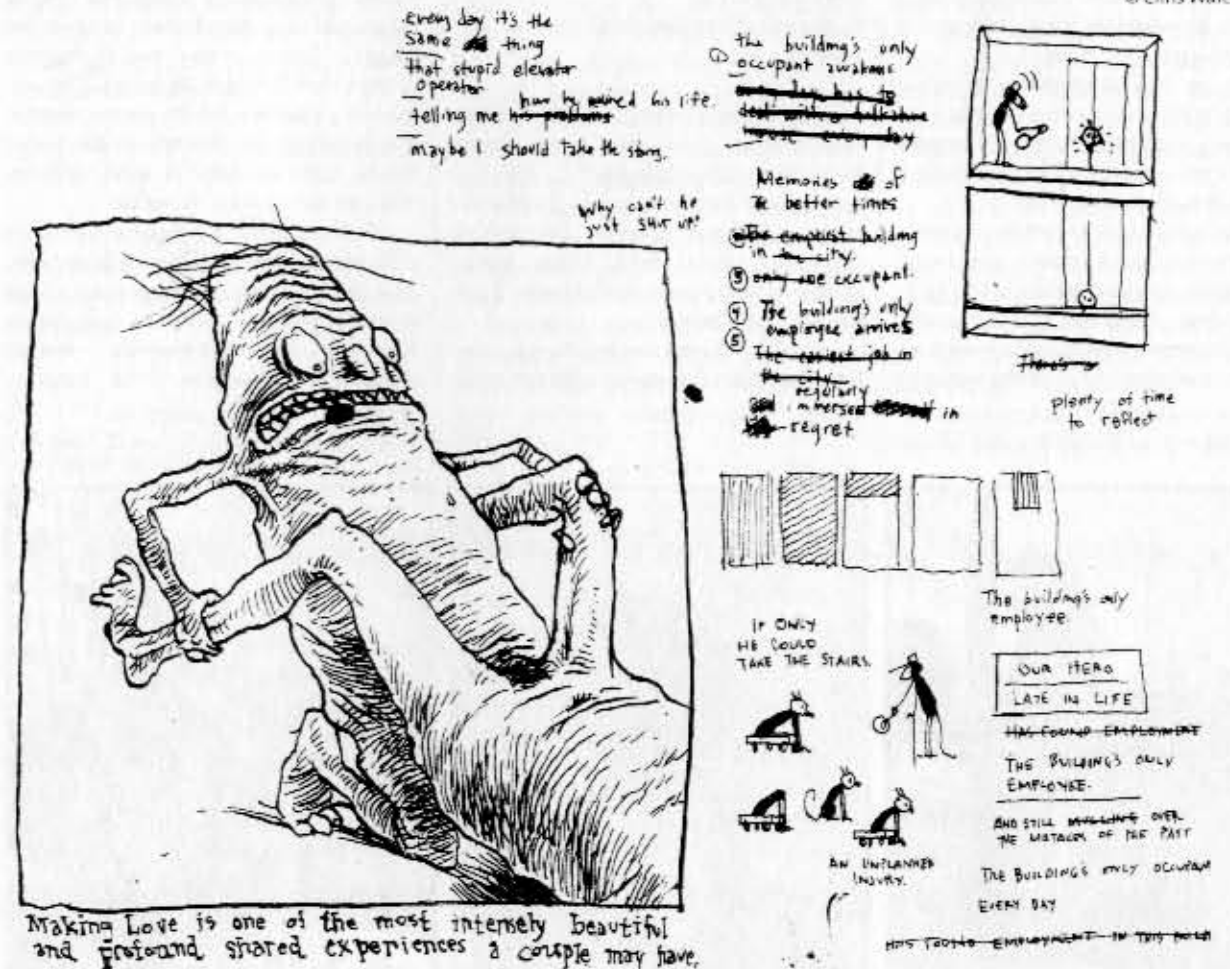 every day it's the
same thing
that stupid elevator
operator
telling me how he ruined his life.
his problems
maybe I should take the stairs.
Why can't he
just shut up?
① the building's only
occupant awakens
every day
Memories of
better times
The emptiest building
in the city.
③ only one occupant.
④ The building's only
⑤ employee arrives
The easiest job in
the city.
regularly
immersed in
regret
There's
plenty of time
to reflect
The building's only
employee.
IF ONLY
HE COULD
TAKE THE STAIRS.
OUR HERO
LATE IN LIFE
HAS FOUND EMPLOYMENT
THE BUILDING'S ONLY
EMPLOYEE.
AND STILL MULLING OVER
THE MISTAKES OF THE PAST
AN UNPLANNED
INJURY.
THE BUILDING'S ONLY OCCUPANT
EVERY DAY
HAS FOUND EMPLOYMENT IN THIS
Making Love is one of the most intensely beautiful
and profound shared experiences a couple may have.